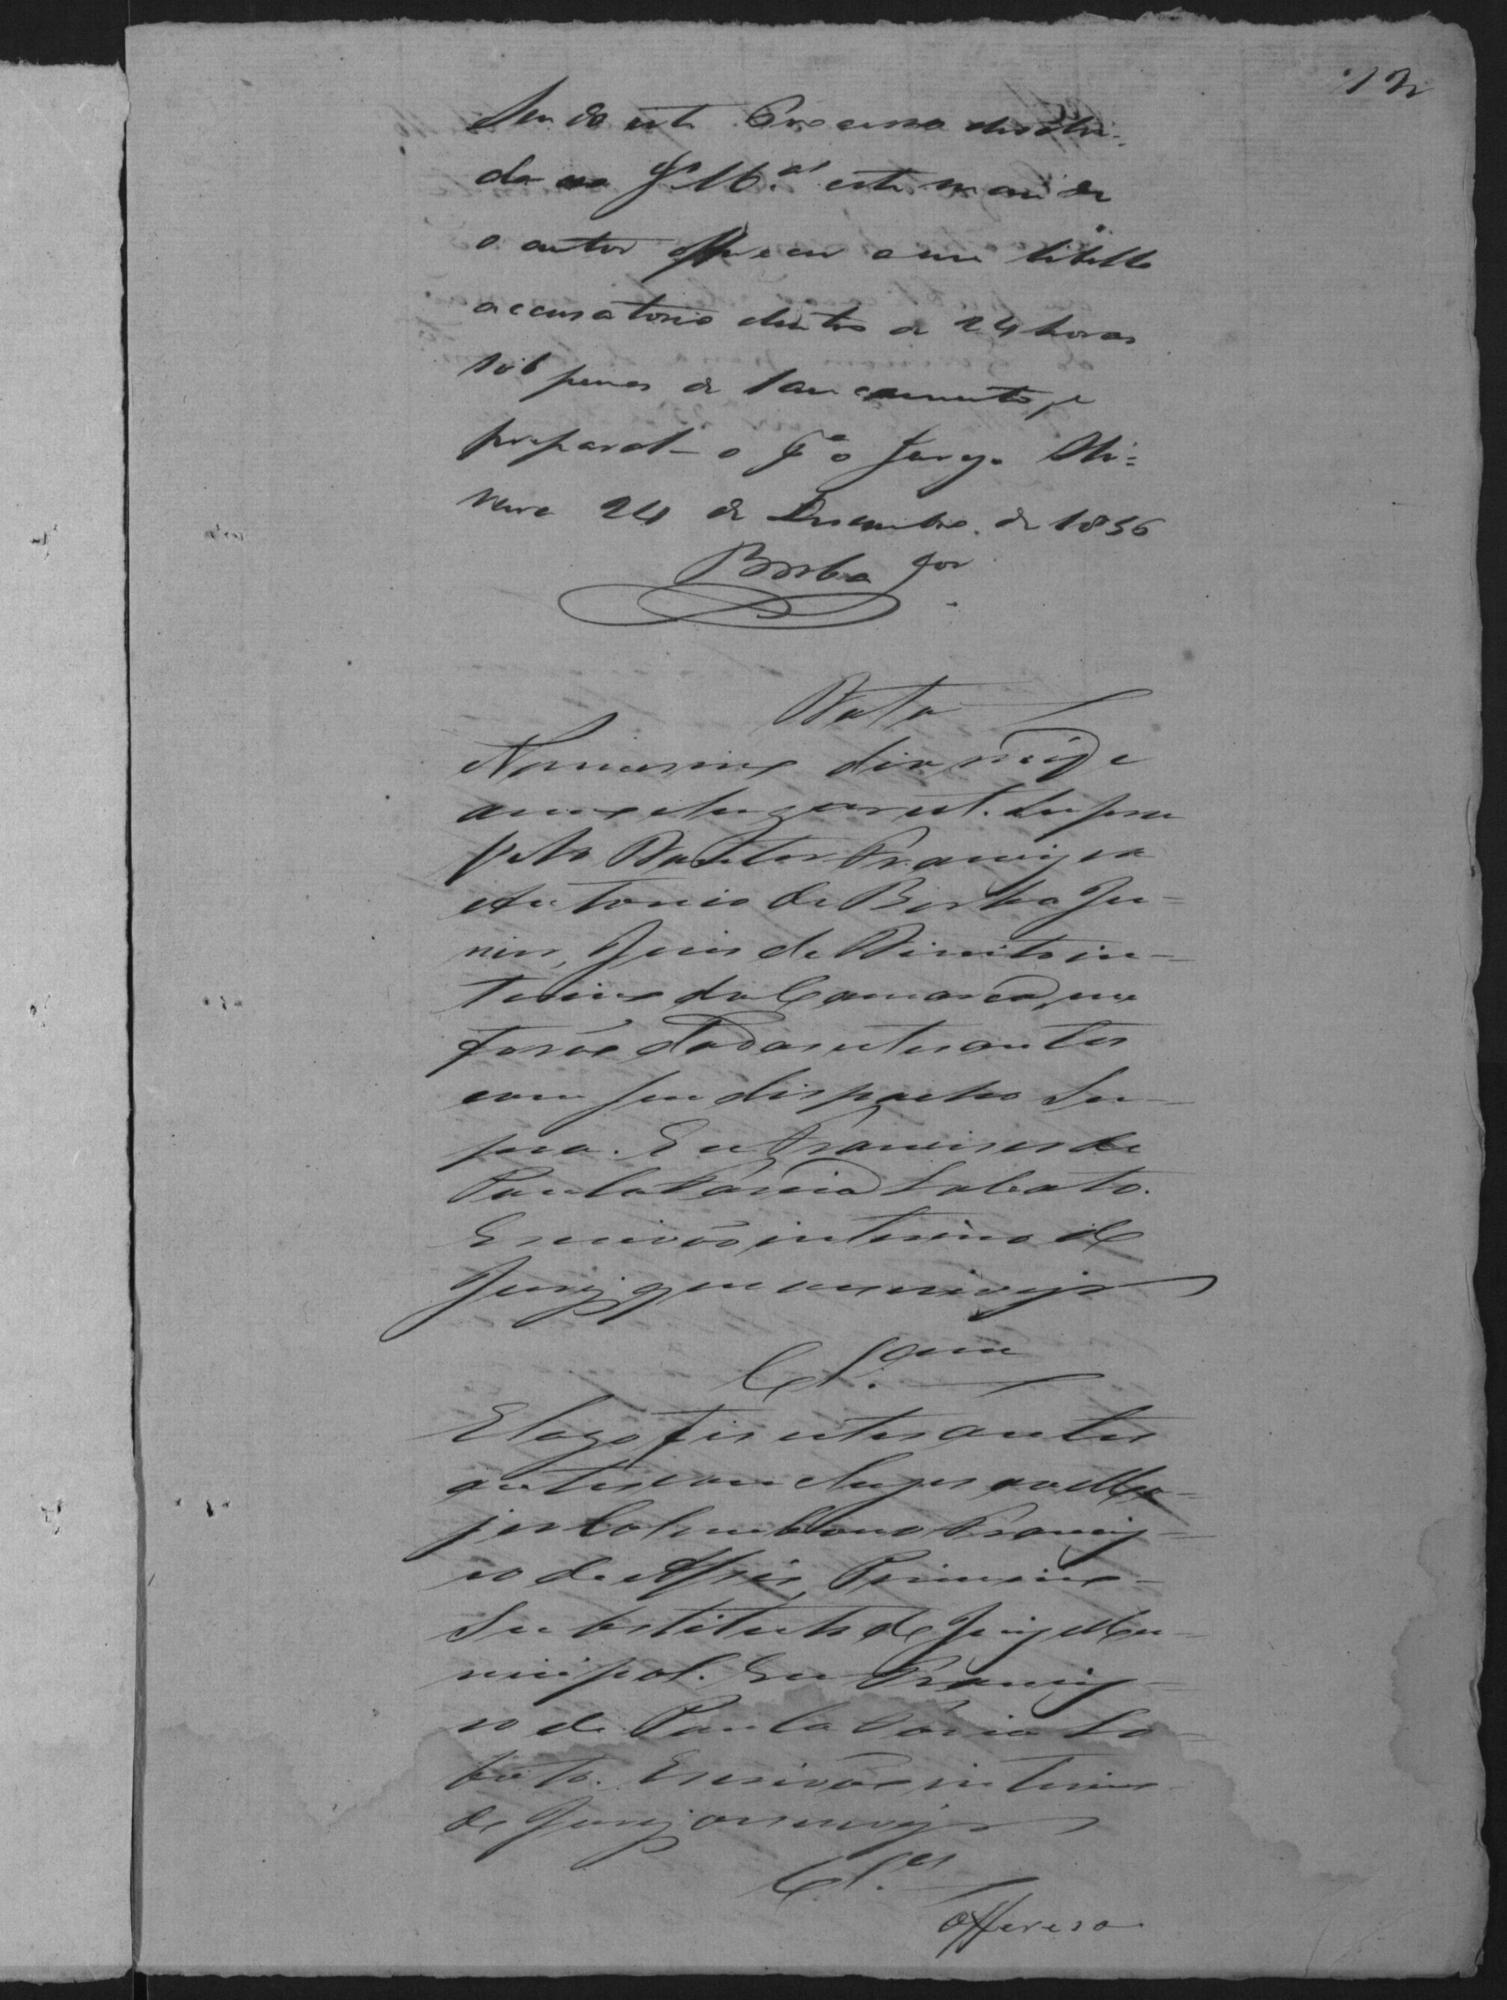 13
Sendo este Processo devolvi-
do ao Jº Mal este mande
o autor offerecer o seu libello
accusatorio dentro de 24 horas
sob penas de lancamento, e
preparal-o pª o Jury.
24 de Dezembro de 1856
Borba Jor
Data
No mesmo dia mez e
anno e lugar ut supra
pelo Doutor Francisco
Antonio de Borba Ju-
nior, Juis de Direito in-
terino da Comarca, me
forão dados estes autos
com seu dispacho Su-
pra. Eu Francisco de
Paula Faria Lobato.
Escrivão interino do
Jury que o escrevy
Clsam
E logo fis estes autos
autos conclusos ao Ma-
jor Columbano Francis-
co de Assis, Primeiro
Substituto do Juiz Mu-
nicipal. Eu Francis-
co de Paula Faria Lo-
bato. Escrivão interino
do Jury o escrevy
Clos
Offereso